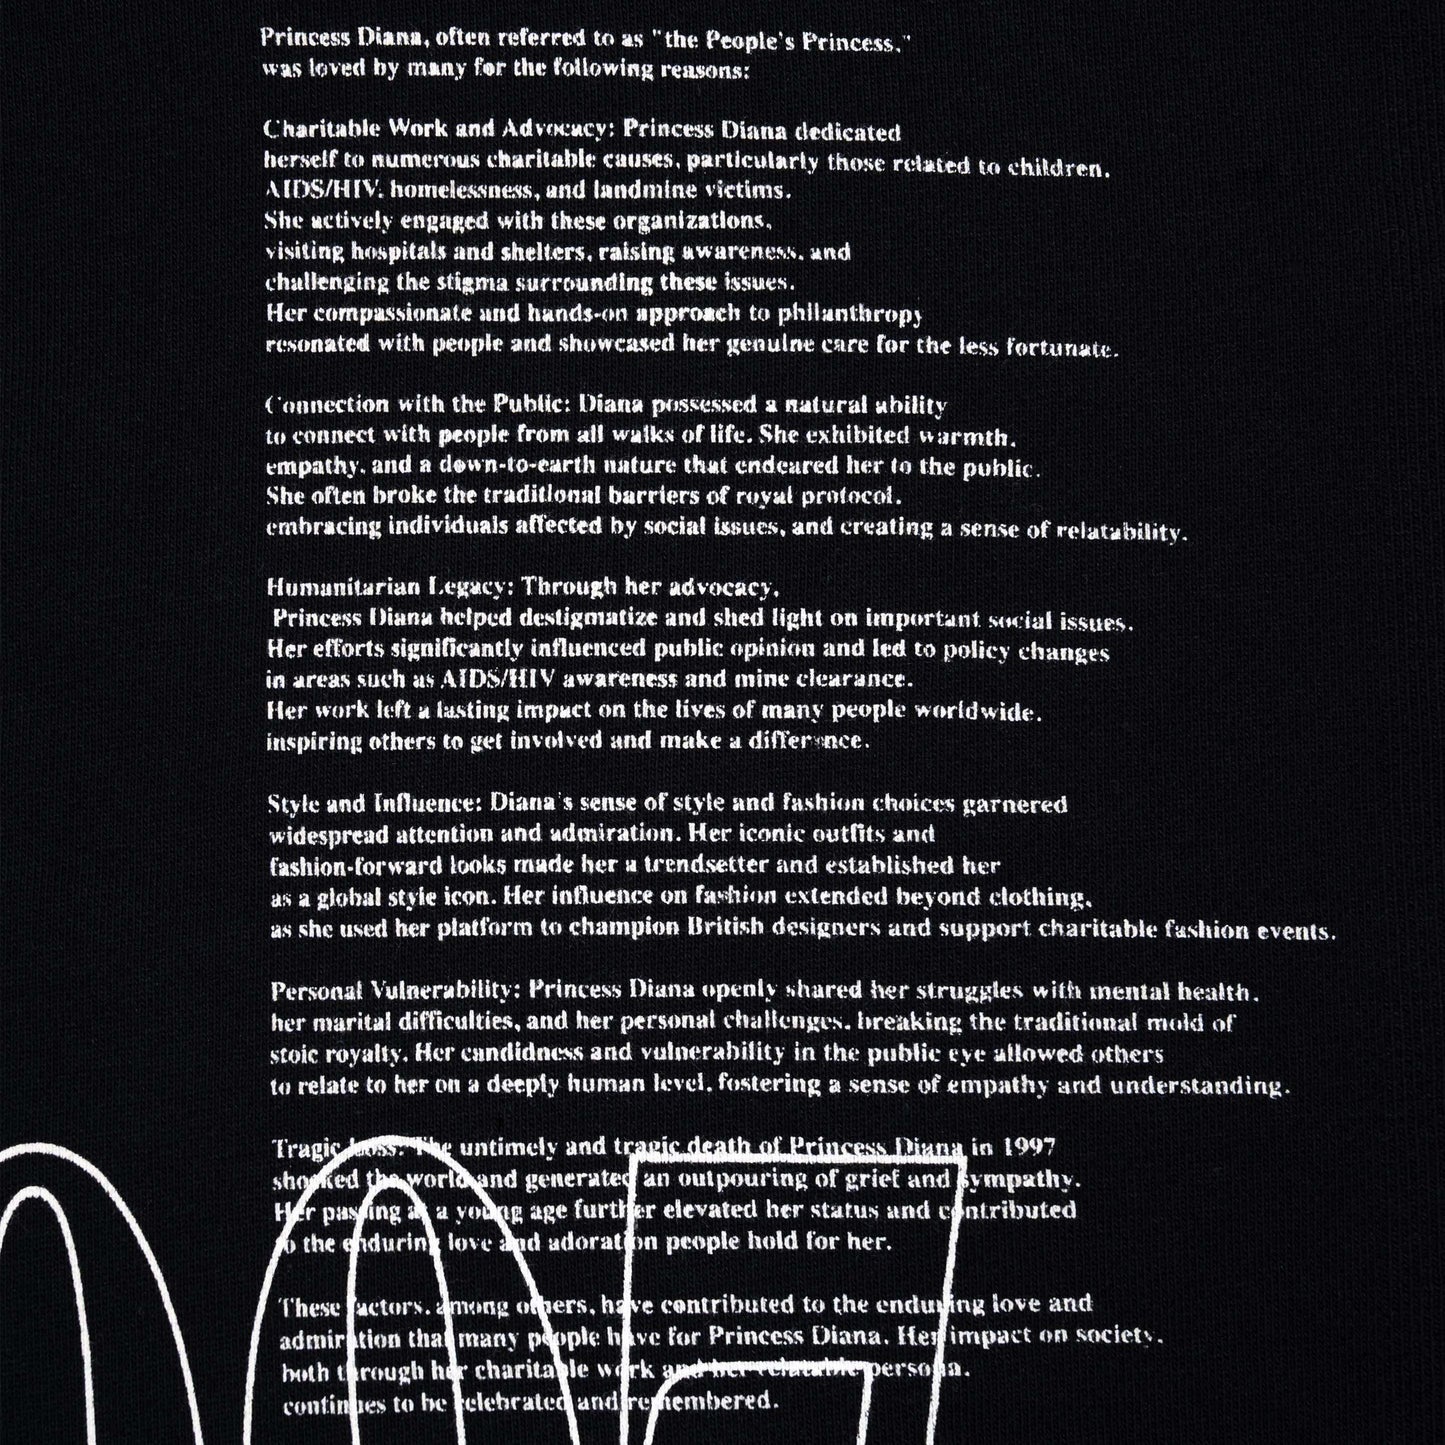 Princess Diana, often referred to as "the People's Princess,"
was loved by many for the following reasons:
Charitable Work and Advocacy: Princess Diana dedicated
herself to numerous charitable causes, particularly those related to children,
AIDS/HIV, homelessness, and landmine victims.
She actively engaged with these organizations,
visiting hospitals and shelters, raising awareness, and
challenging the stigma surrounding these issues.
Her compassionate and hands-on approach to philanthropy
resonated with people and showcased her genuine care for the less fortunate.
Connection with the Public: Diana possessed a natural ability
to connect with people from all walks of life. She exhibited warmth,
empathy, and a down-to-earth nature that endeared her to the public.
She often broke the traditional barriers of royal protocol,
embracing individuals affected by social issues, and creating a sense of relatability.
Humanitarian Legacy: Through her advocacy,
Princess Diana helped destigmatize and shed light on important social issues.
Her efforts significantly influenced public opinion and led to policy changes
in areas such as AIDS/HIV awareness and mine clearance.
Her work left a lasting impact on the lives of many people worldwide,
inspiring others to get involved and make a difference.
Style and Influence: Diana's sense of style and fashion choices garnered
widespread attention and admiration. Her iconic outfits and
fashion-forward looks made her a trendsetter and established her
as a global style icon. Her influence on fashion extended beyond clothing,
as she used her platform to champion British designers and support charitable fashion events.
Personal Vulnerability: Princess Diana openly shared her struggles with mental health,
her marital difficulties, and her personal challenges, breaking the traditional mold of
stoic royalty. Her candidness and vulnerability in the public eye allowed others
to relate to her on a deeply human level, fostering a sense of empathy and understanding.
Tragic Loss: The untimely and tragic death of Princess Diana in 1997
shocked the world and generated an outpouring of grief and sympathy.
Her passing at a young age further elevated her status and contributed
to the enduring love and adoration people hold for her.
These factors, among others, have contributed to the enduring love and
admiration that many people have for Princess Diana. Her impact on society,
both through her charitable work and her relatable persona,
continues to be celebrated and remembered.